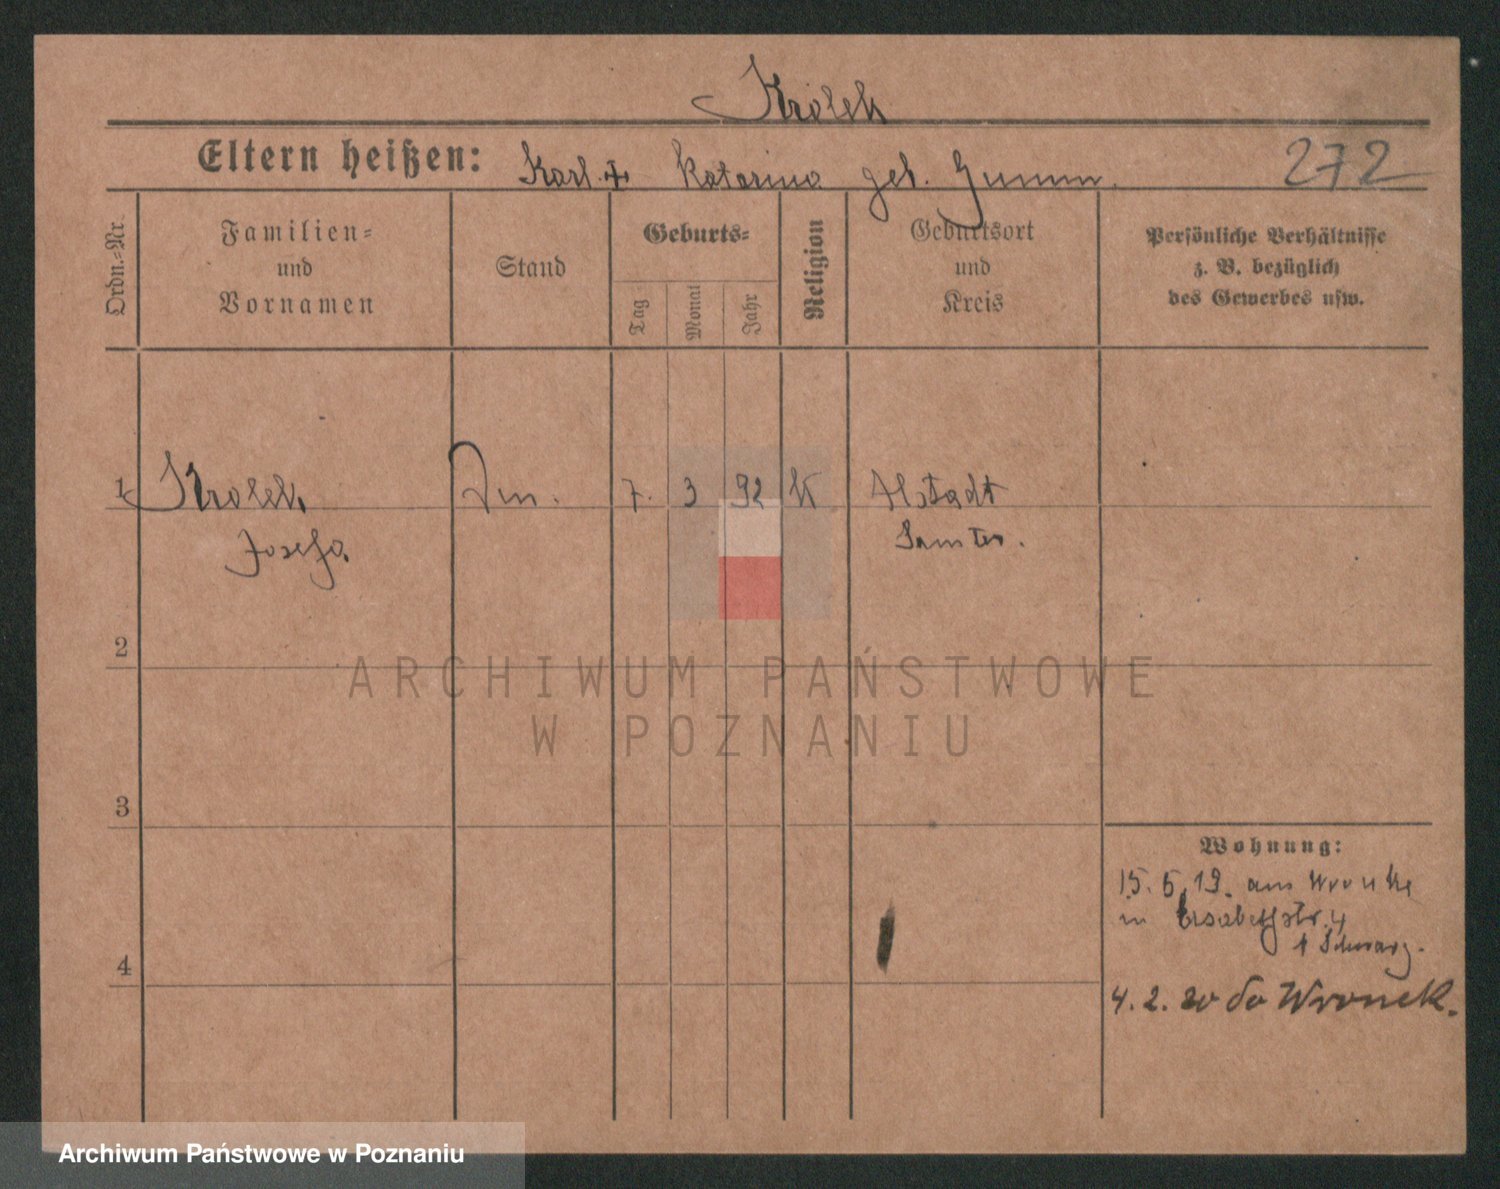 Krolek
Eltern heißen: Karl + Katarina geb. Gumm. 272
Ordn.-Nr.
Familien-
und
Vornamen
Stand
Geburts-
Tag
Monat
Jahr
Religion
Geburtsort
und
Kreis
Persönliche Verhältnisse
z. B. bezüglich
des Gewerbes usw.
1 Krolek 7. 3 92 K Alstadt
Josefa Samter.
2
3
4
Wohnung:
15. 5. 19. aus Wronke
in 4
Schwarz.
4. 2. 20 do Wronek.
ARCHIWUM PAŃSTWOWE
W POZNANIU
Archiwum Państwowe w Poznaniu